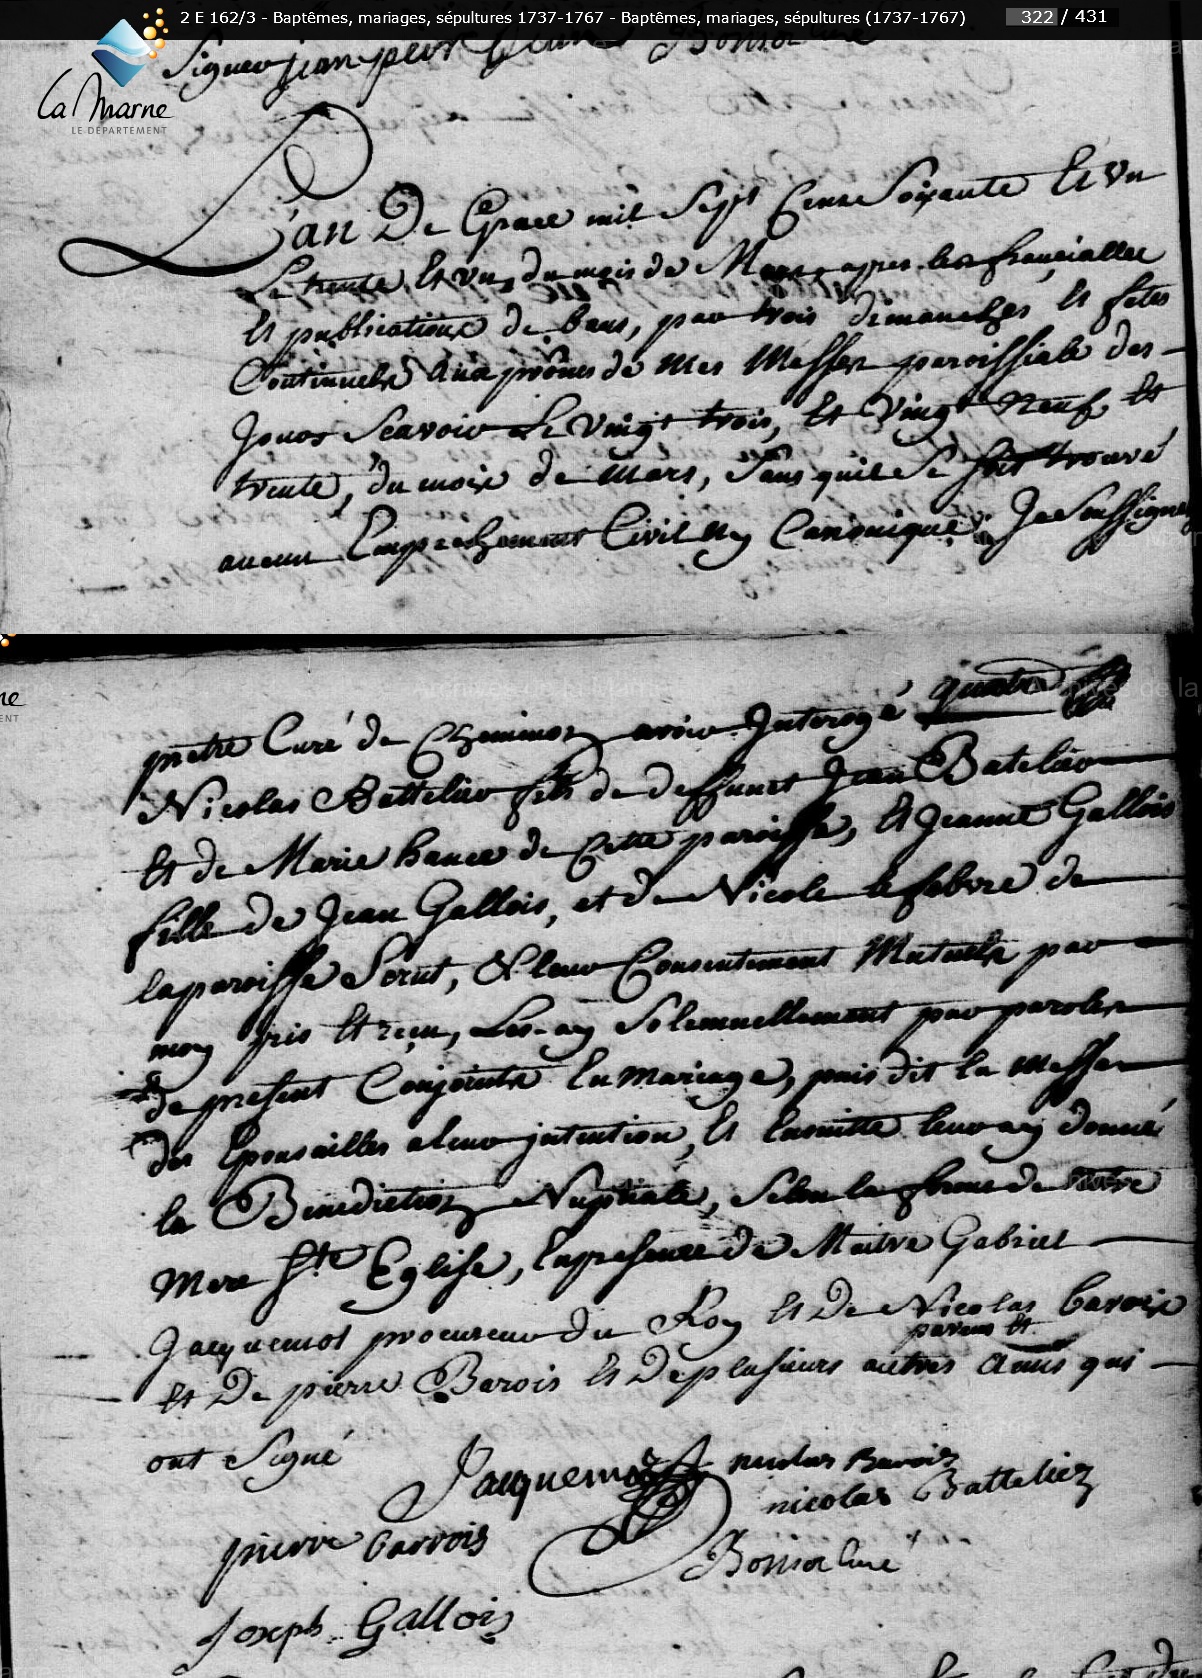 2 E 162/3 - Baptêmes, mariages, sépultures 1737-1767 - Baptêmes, mariages, sépultures (1737-1767)
322 / 431
La Marne
LE DÉPARTEMENT
Signer jean pierre
L'an De Grace mil Sept Cens Soixante Et un
Le trente Et un, du mois de Mars apres les fiancialles
Et publications de bans, par trois dimanches Et fêtes
Continuels aux prônes de mes Messes paroissiale des
Jours Scavoir Le Vingt trois, Et Vingt Neuf, Et
trente, du mois de Mars, Sans quil Se soit trouvé
aucun Empechement Civil Ny Canonique, Je Soussigné
pretre Curé de Cheminon avoir Interogé
Nicolas Battelier fils de deffunct Jean Batelier
Et de Marie hance de Cette paroisse, Et Jeanne Gallois
fille de Jean Gallois, et de Nicole lefebvre de
la paroisse Serut, & leur Consentement Mutuels par
moy pris Et reçu, Les-ay Solemnellement par paroles
de present Conjoints En mariage, puis dit la messe
des Epousailles a leur jntention, Et Ensuitte leur ay donné
la Benediction Nuptiale, Selon la forme de notre
Mere Ste Eglise, En presence de Maitre Gabriel
Jacquemot procureur du Roy Et De Nicolas barois
parens et
Et De pierre Barois Et De plusieurs autres amis qui
ont Signé
Jacquemot nicolas Barois
nicolas Battelier
pierre barrois
Bonsor Curé
Joseph Gallois